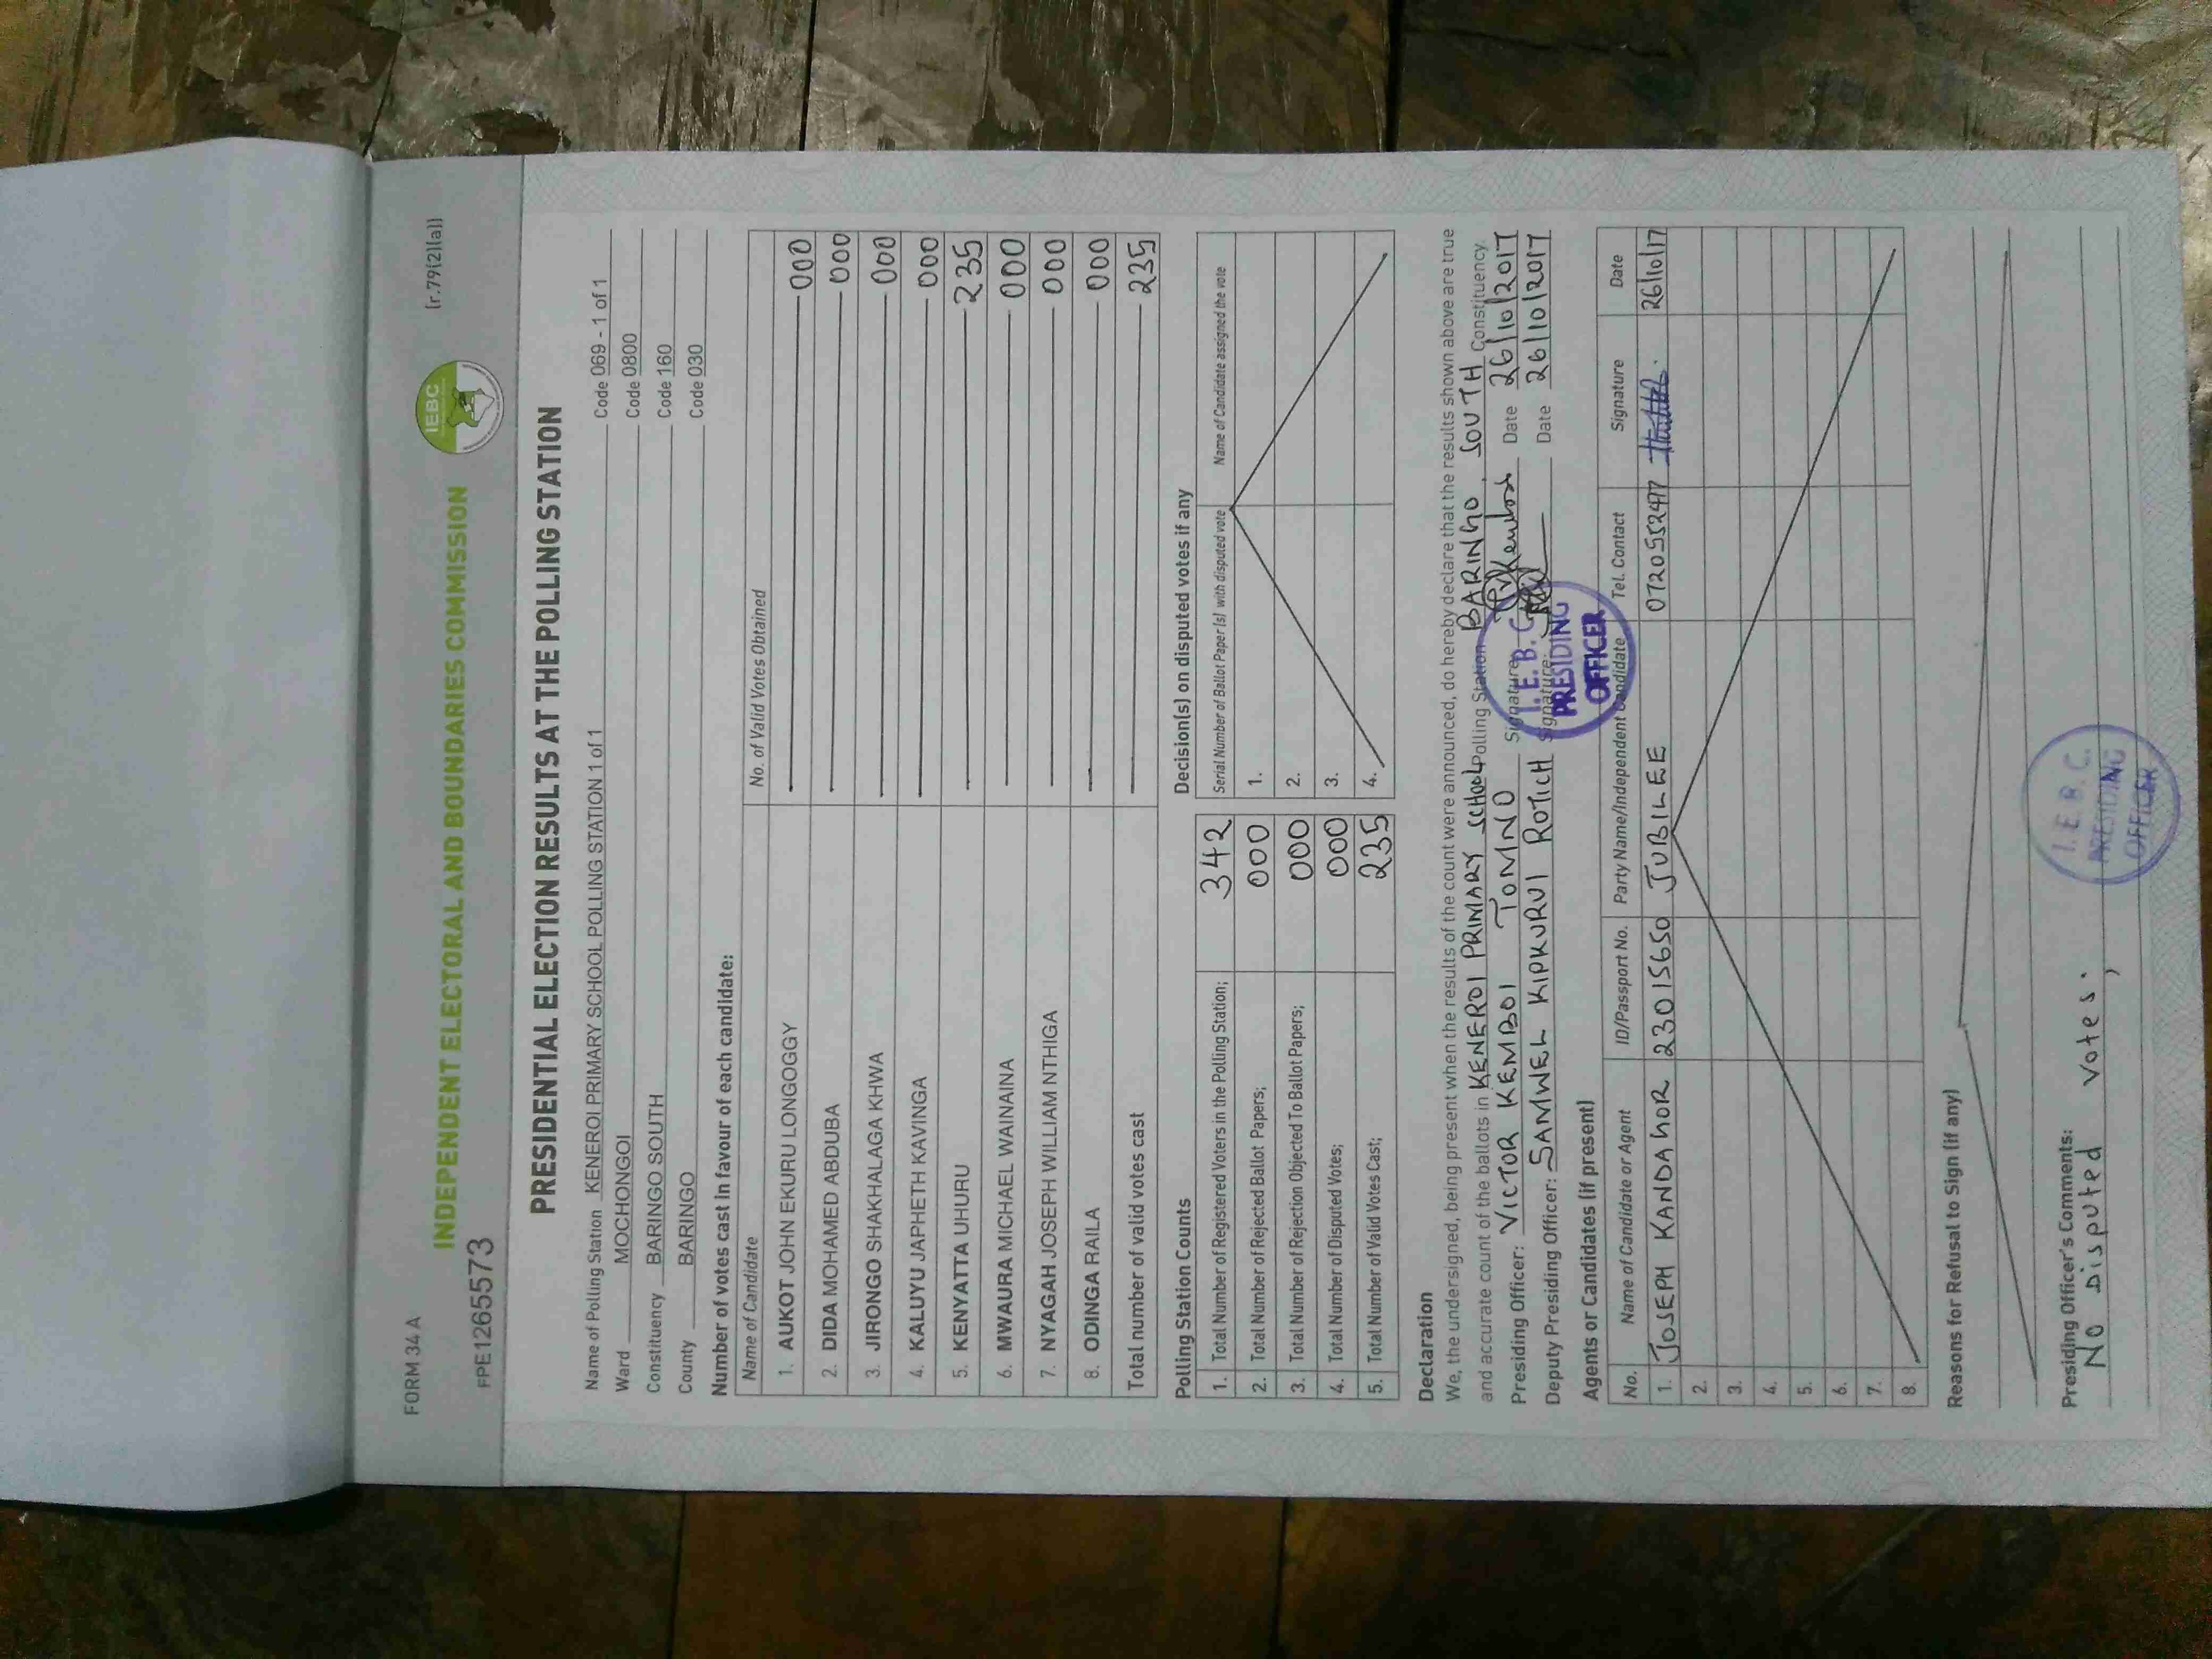 FORM 34 A
(r.79(2)(a))
IEBC
INDEPENDENT ELECTORAL AND BOUNDARIES COMMISSION
FPE1265573
PRESIDENTIAL ELECTION RESULTS AT THE POLLING STATION
Name of Polling Station KENEROI PRIMARY SCHOOL POLLING STATION 1 of 1 Code 069 - 1 of 1
Ward MOCHONGOI Code 0800
Constituency BARINGO SOUTH Code 160
County BARINGO Code 030
Number of votes cast in favour of each candidate:
Name of Candidate No. of Valid Votes Obtained
1. AUKOT JOHN EKURU LONGOGGY 000
2. DIDA MOHAMED ABDUBA 000
3. JIRONGO SHAKHALAGA KHWA 000
4. KALUYU JAPHETH KAVINGA 000
5. KENYATTA UHURU 235
6. MWAURA MICHAEL WAINAINA 000
7. NYAGAH JOSEPH WILLIAM NTHIGA 000
8. ODINGA RAILA 000
Total number of valid votes cast 235
Polling Station Counts
1. Total Number of Registered Voters in the Polling Station; 342
2. Total Number of Rejected Ballot Papers; 000
3. Total Number of Rejection Objected To Ballot Papers; 000
4. Total Number of Disputed Votes; 000
5. Total Number of Valid Votes Cast; 235
Decision(s) on disputed votes if any
Serial Number of Ballot Paper (s) with disputed vote Name of Candidate assigned the vote
1.
2.
3.
4.
Declaration
We, the undersigned, being present when the results of the count were announced, do hereby declare that the results shown above are true
and accurate count of the ballots in KENEROI PRIMARY SCHOOL Polling Station BARINGO SOUTH Constituency.
Presiding Officer: VICTOR KEMBOI TOMNO Signature: Date 26/10/2017
Deputy Presiding Officer: SAMWEL KIPKURUI ROTICH Signature: Date 26/10/2017
I.E.B.C.
PRESIDING
OFFICER
Agents or Candidates (if present)
No. Name of Candidate or Agent ID/Passport No. Party Name/Independent Candidate Tel. Contact Signature Date
1. JOSEPH KANDAGOR 23015650 JUBILEE 0720552477 26/10/17
2.
3.
4.
5.
6.
7.
8.
Reasons for Refusal to Sign (if any)
Presiding Officer's Comments:
No Disputed votes.
I.E.B.C.
PRESIDING
OFFICER